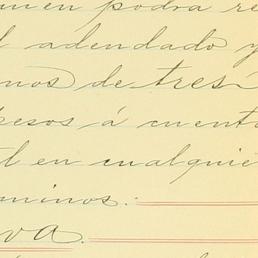 men podra re
l adendado y
nos de tres
pesos á cuent
l en cualquie
minos.
va.